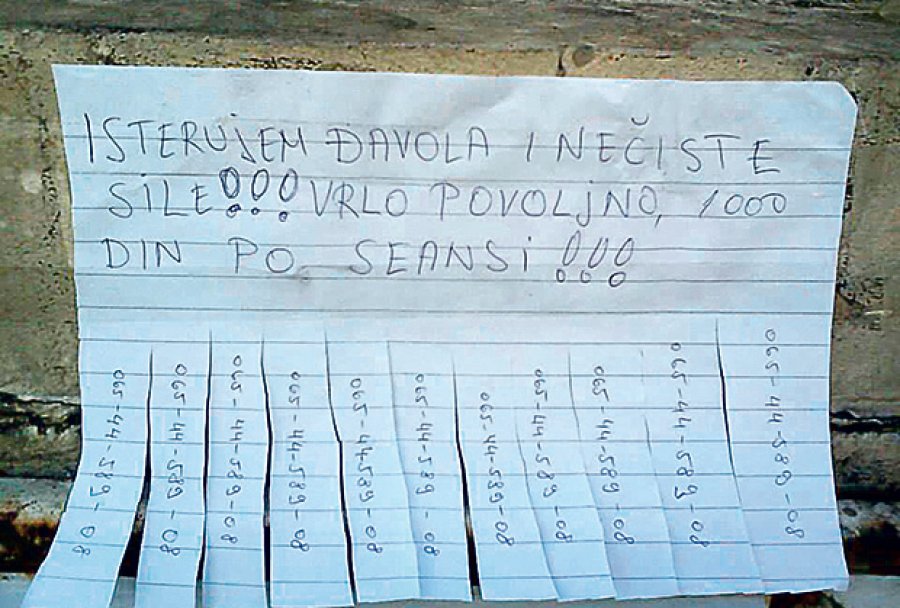 ISTERUJEM ĐAVOLA I NEČISTE
SILE!!! VRLO POVOLJNO, 1000
DIN PO SEANSI!!!
065-44-589-08
065-44-589-08
065-44-589-08
065-44-589-08
065-44-589-08
065-44-589-08
065-44-589-08
065-44-589-08
065-44-589-08
065-44-589-08
065-44-589-08